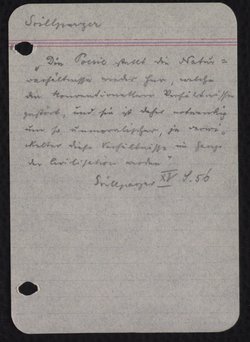 Grillparzer
„Die Poesie stellt die Natur=
verhältnisse wieder her, welche
die konventionellen Verhältnisse
gestört, und sie ist daher notwendig
um so unmoralischer, je verwi-
kelter diese Verhältnisse im Gange
der Civilisation werden."
Grillparzer XV S. 56